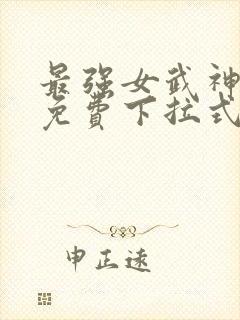 最强女武神
免費下拉式
申正遠